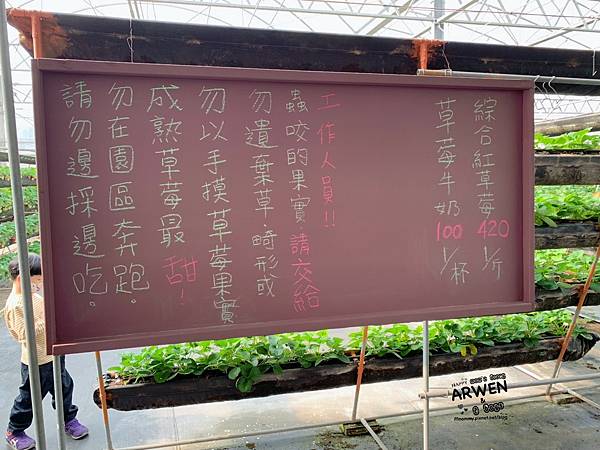 請勿邊採邊吃。
勿在園區奔跑。
成熟草莓最甜!
勿以手摸草莓果實
勿遺棄草.畸形或
蟲咬的果實.請交給
工作人員!!
草莓牛奶100 1/杯
綜合紅草莓420 1/斤
HAPPY
ARWEN
&